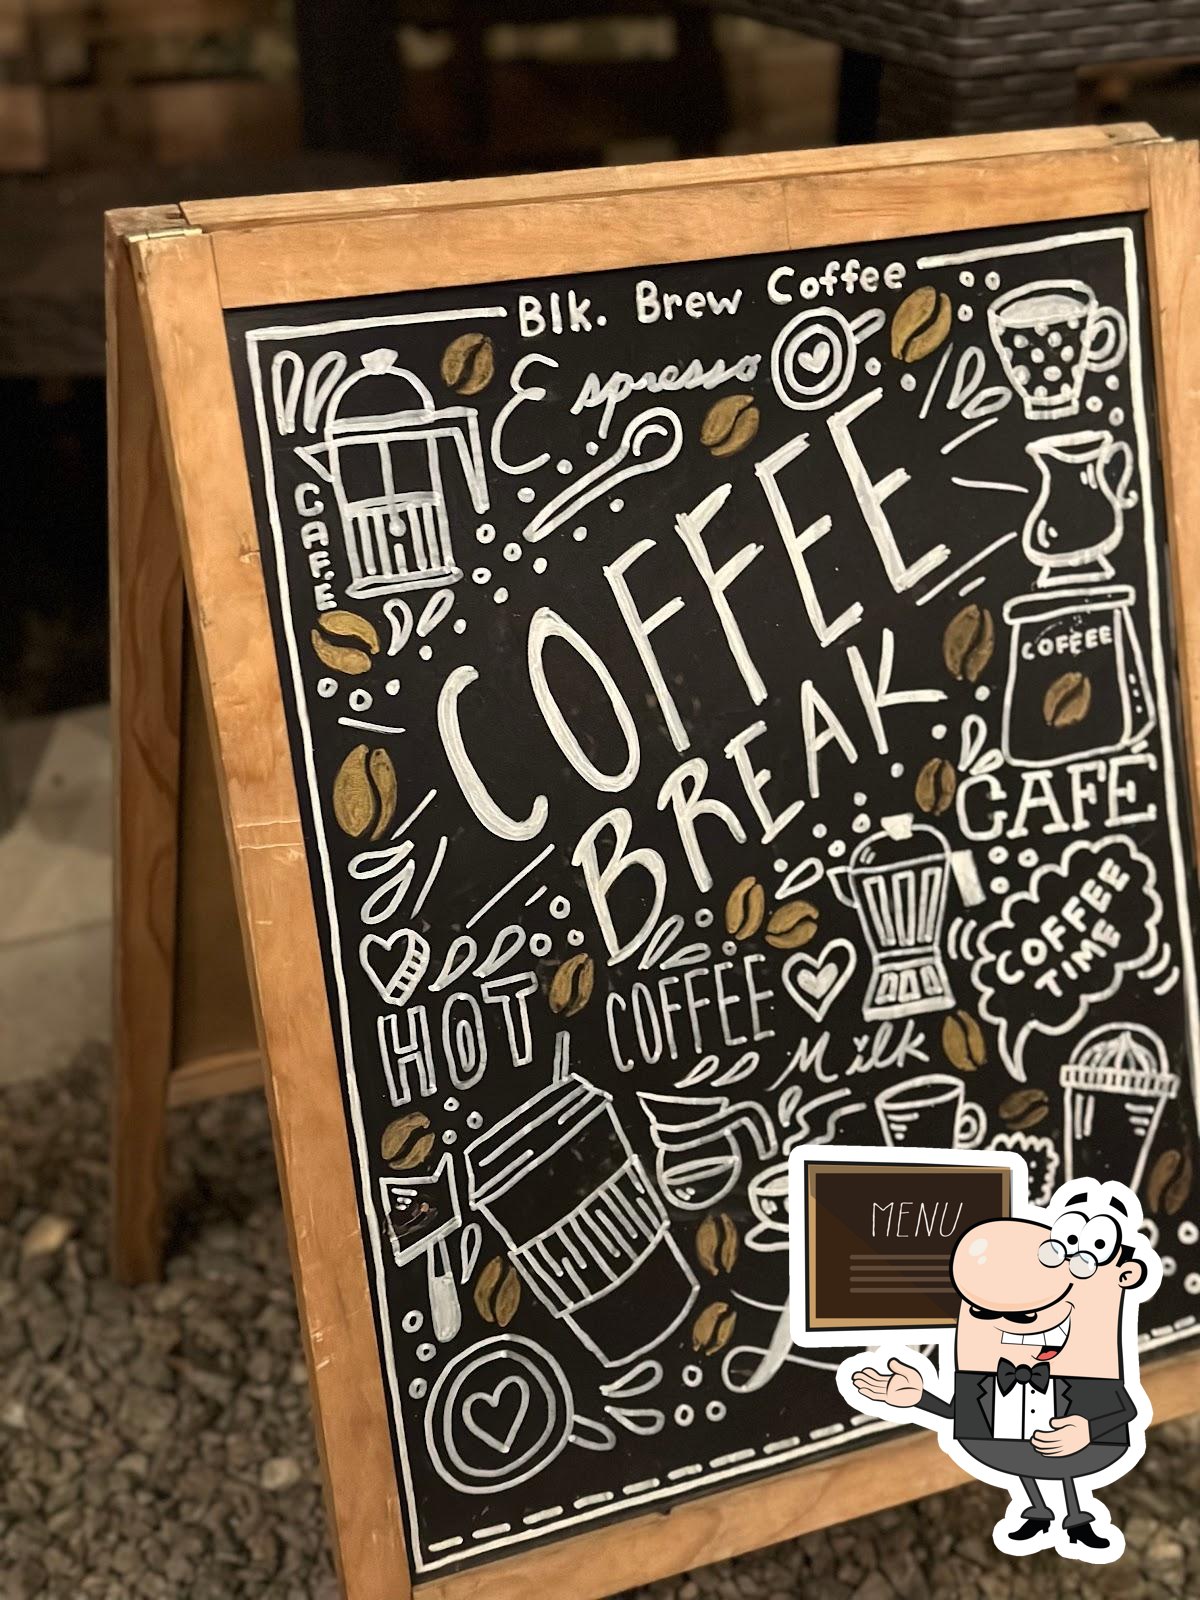 Blk. Brew Coffee
Espresso
CAFE
COFFEE
BREAK
COFFEE
CAFÉ
COFFEE
TIME
HOT
COFFEE
Milk
MENU